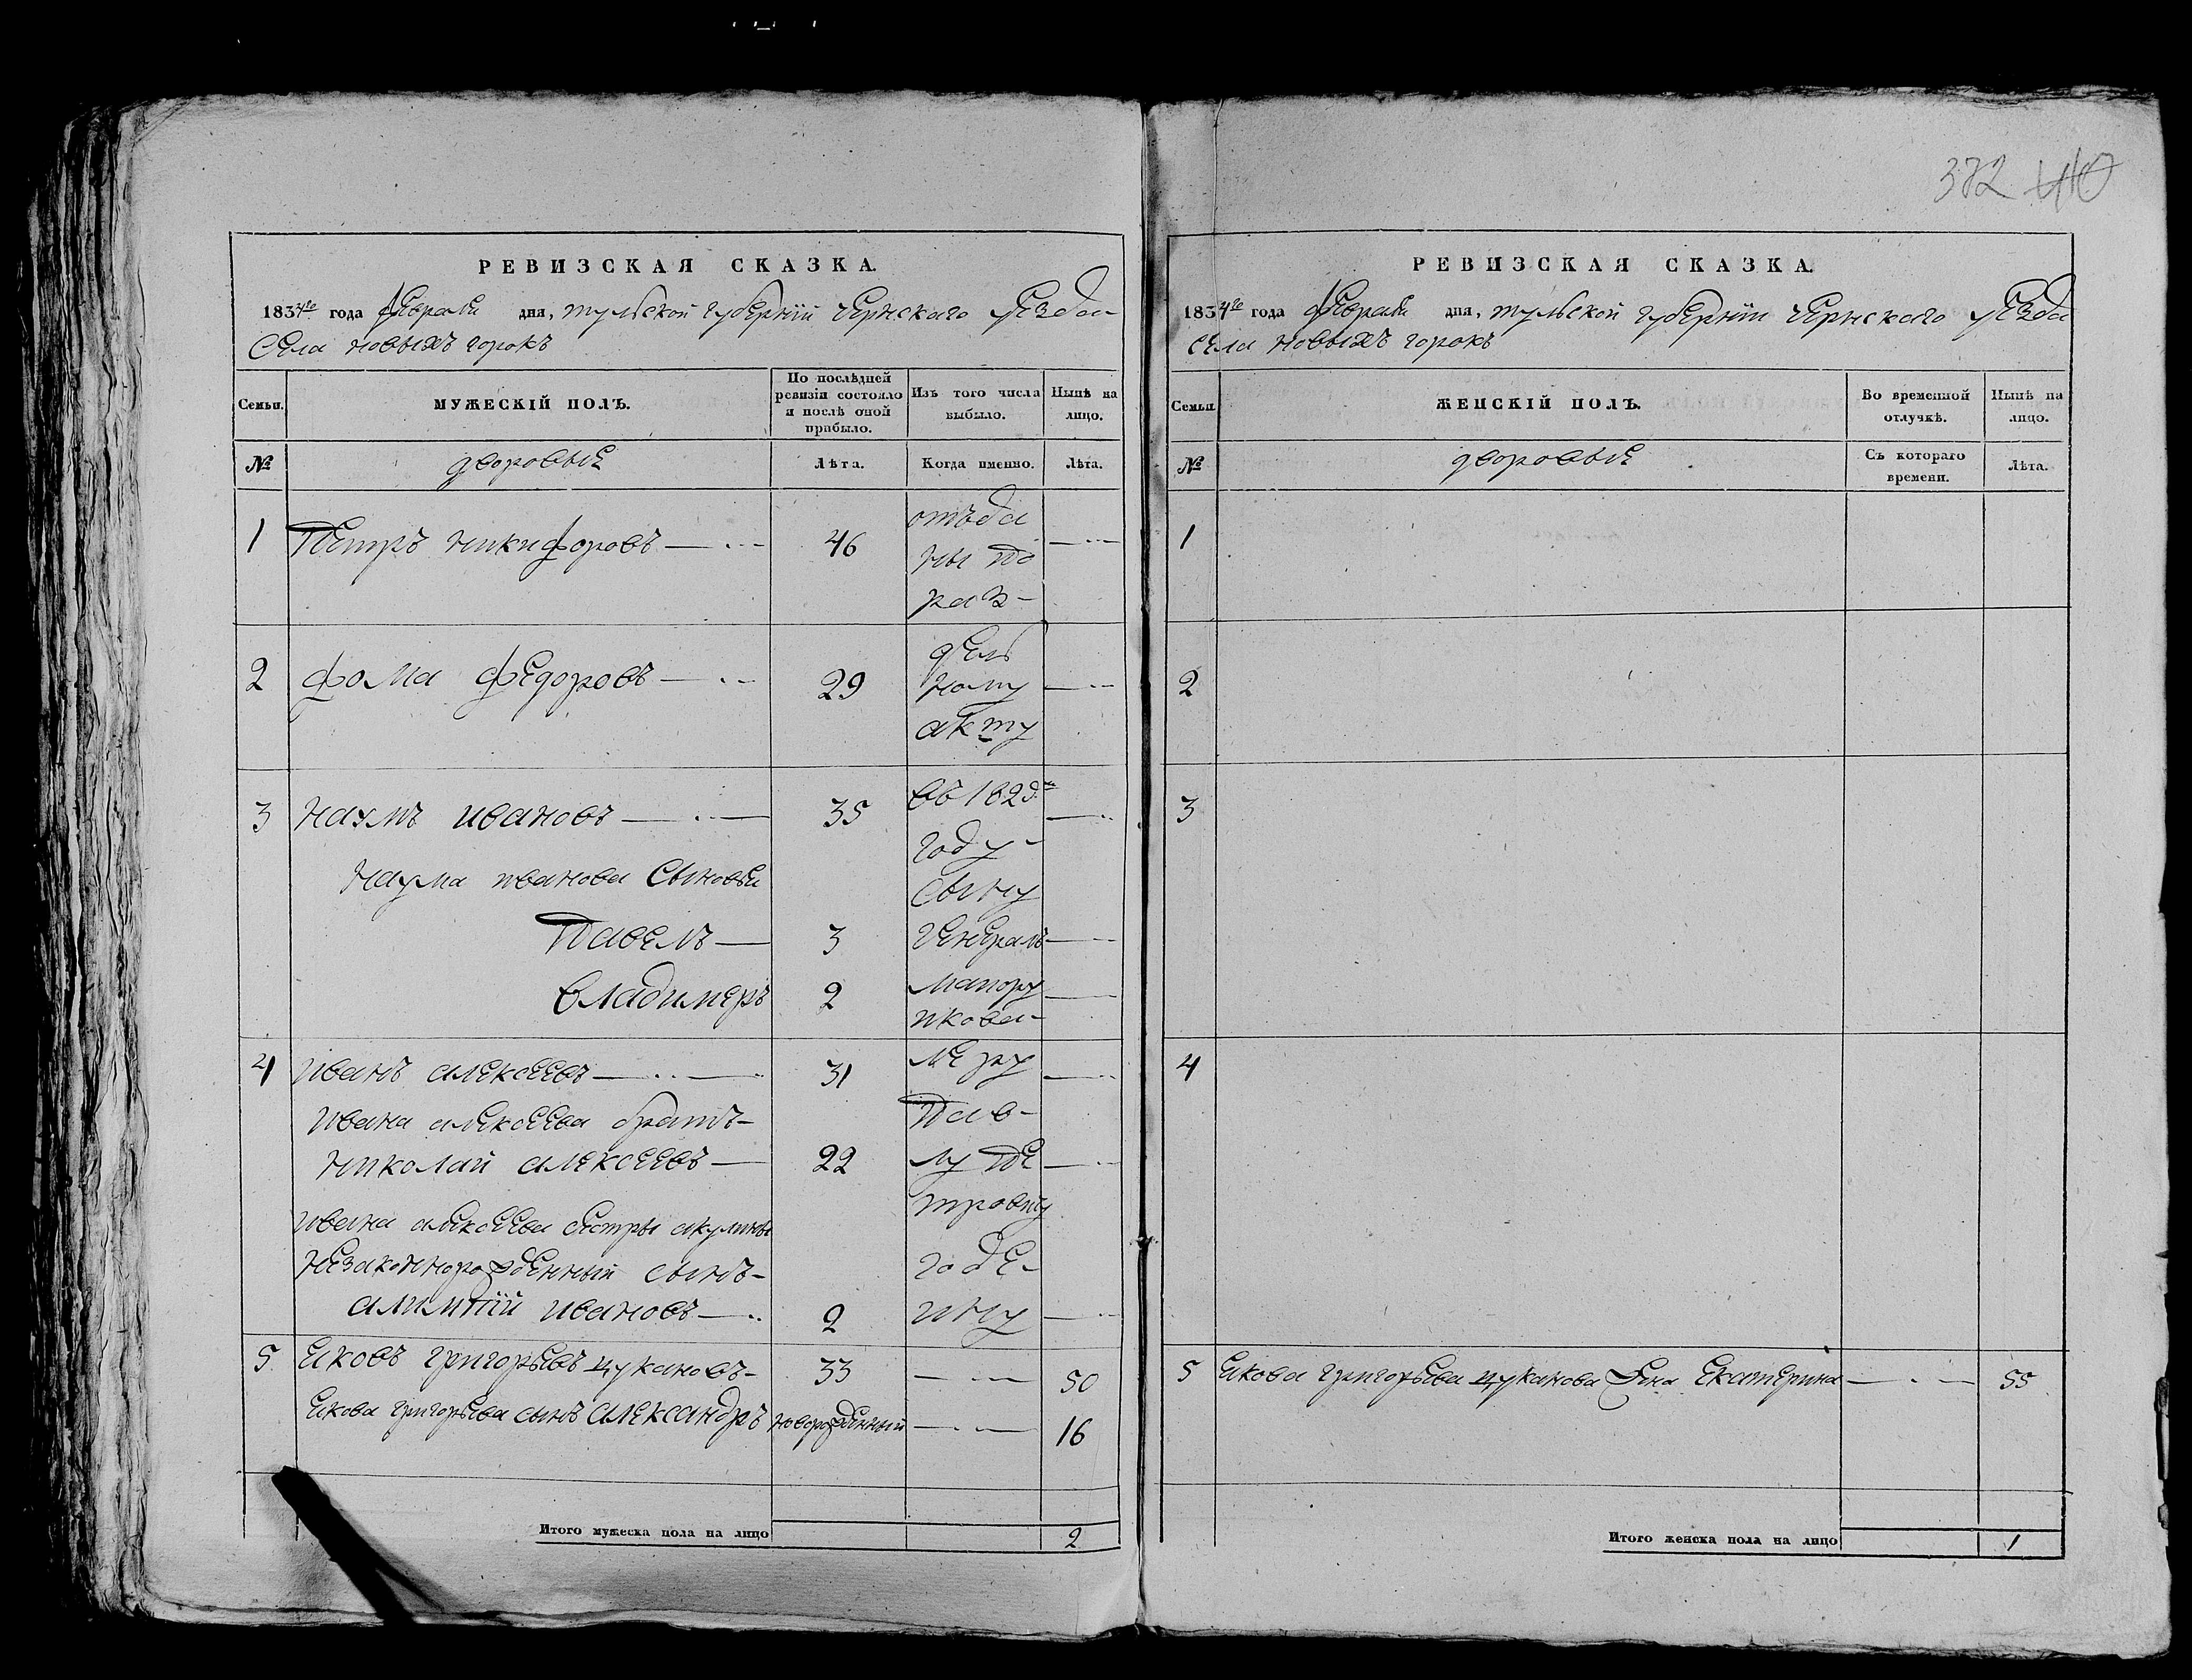 372 410
РЕВИЗСКАЯ СКАЗКА.
1834го года февраля дня, тульской губернии чернскаго уезда
села новыхъ горокъ
Семьи.
МУЖЕСКІЙ ПОЛЪ.
По послѣдней ревизіи состояло и послѣ оной прибыло.
Изъ того числа выбыло.
Нынѣ на лицо.
№
дворовые
Лѣта.
Когда именно.
Лѣта.
1 Петръ никифоровъ 46
отъда
ны по
раз-
2 фома федоровъ 29
дель
ному
акту
3 наумъ ивановъ 35
въ 182
году
наума иванова сыновья
сыну
Павелъ 3
генералъ
владимеръ 2
маиору
якова-
4 иванъ алексеевъ 31
ивана алексеева братъ-
Пав-
николай алексеевъ 22
лу Пе
тровичу
ивана алексеева сестры акулины
незаконнорожденный сынъ-
алимпій ивановъ 2
5 яковъ григорьевъ цукановъ- 33 50
якова григорьева сынъ александръ новорожденный 16
Итого мужеска пола на лицо 2
РЕВИЗСКАЯ СКАЗКА.
1834го года февраля дня, тульской губернии чернскаго уезда
села новыхъ горокъ
Семьи.
ЖЕНСКІЙ ПОЛЪ.
Во временной отлучкѣ.
Нынѣ на лицо.
№
дворовые
Съ котораго времени.
Лѣта.
1
2
3
4
5 якова григорьева цуканова жена екатерина 55
Итого женска пола на лицо 1